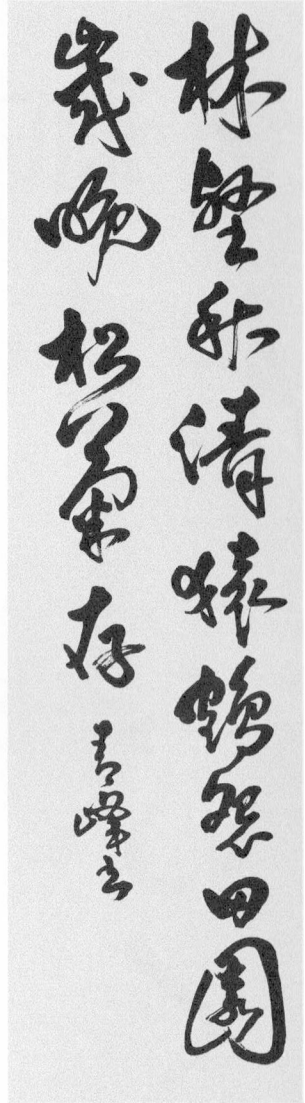 林壑秋清猿鶴怨田園
歲晚松菊存
青峰书